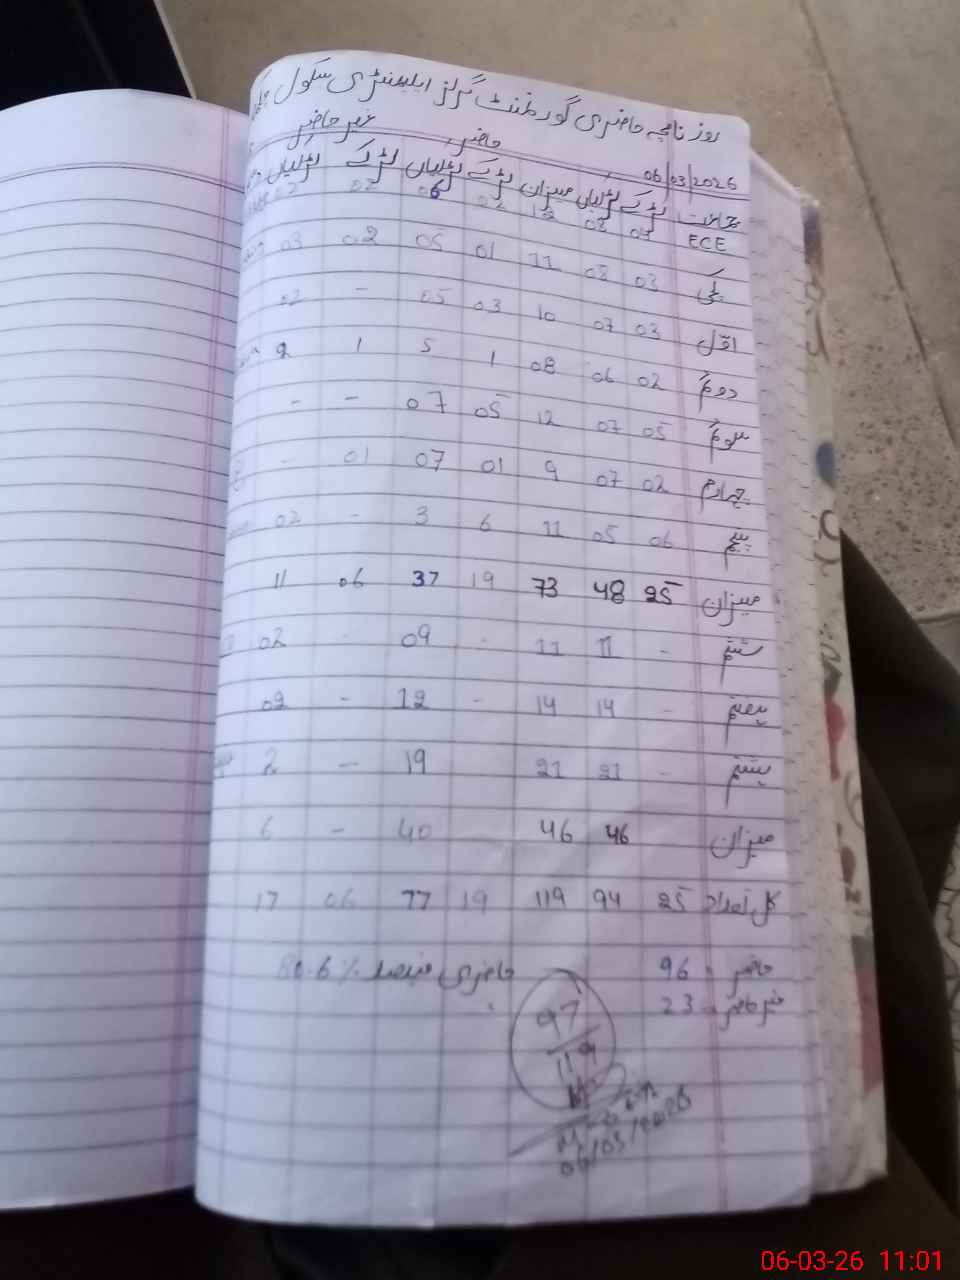 روزنامچہ حاضری گورنمنٹ گرلز ایلیمنٹری سکول
06/03/2026 حاضر غیر حاضر
جماعت لڑکے لڑکیاں میزان لڑکے لڑکیاں لڑکے لڑکیاں
ECE 04 08 12 02 06 02 02
کچی 03 08 11 01 05 02 03
اوّل 03 07 10 03 05 - 02
دوم 02 06 08 1 5 1 2
سوم 05 07 12 05 07 - -
چہارم 02 07 9 01 07 01 -
پنجم 06 05 11 6 3 - 02
میزان 25 48 73 19 37 06 11
ششم - 11 11 - 09 02
ہفتم - 14 14 - 12 - 02
ہشتم - 21 21 19 - 2
میزان 46 46 40 - 6
کل تعداد 25 94 119 19 77 06 17
حاضر = 96 حاضری فیصد % 80.6
غیر حاضر = 23
97
119
06/03/2026
06-03-26 11:01